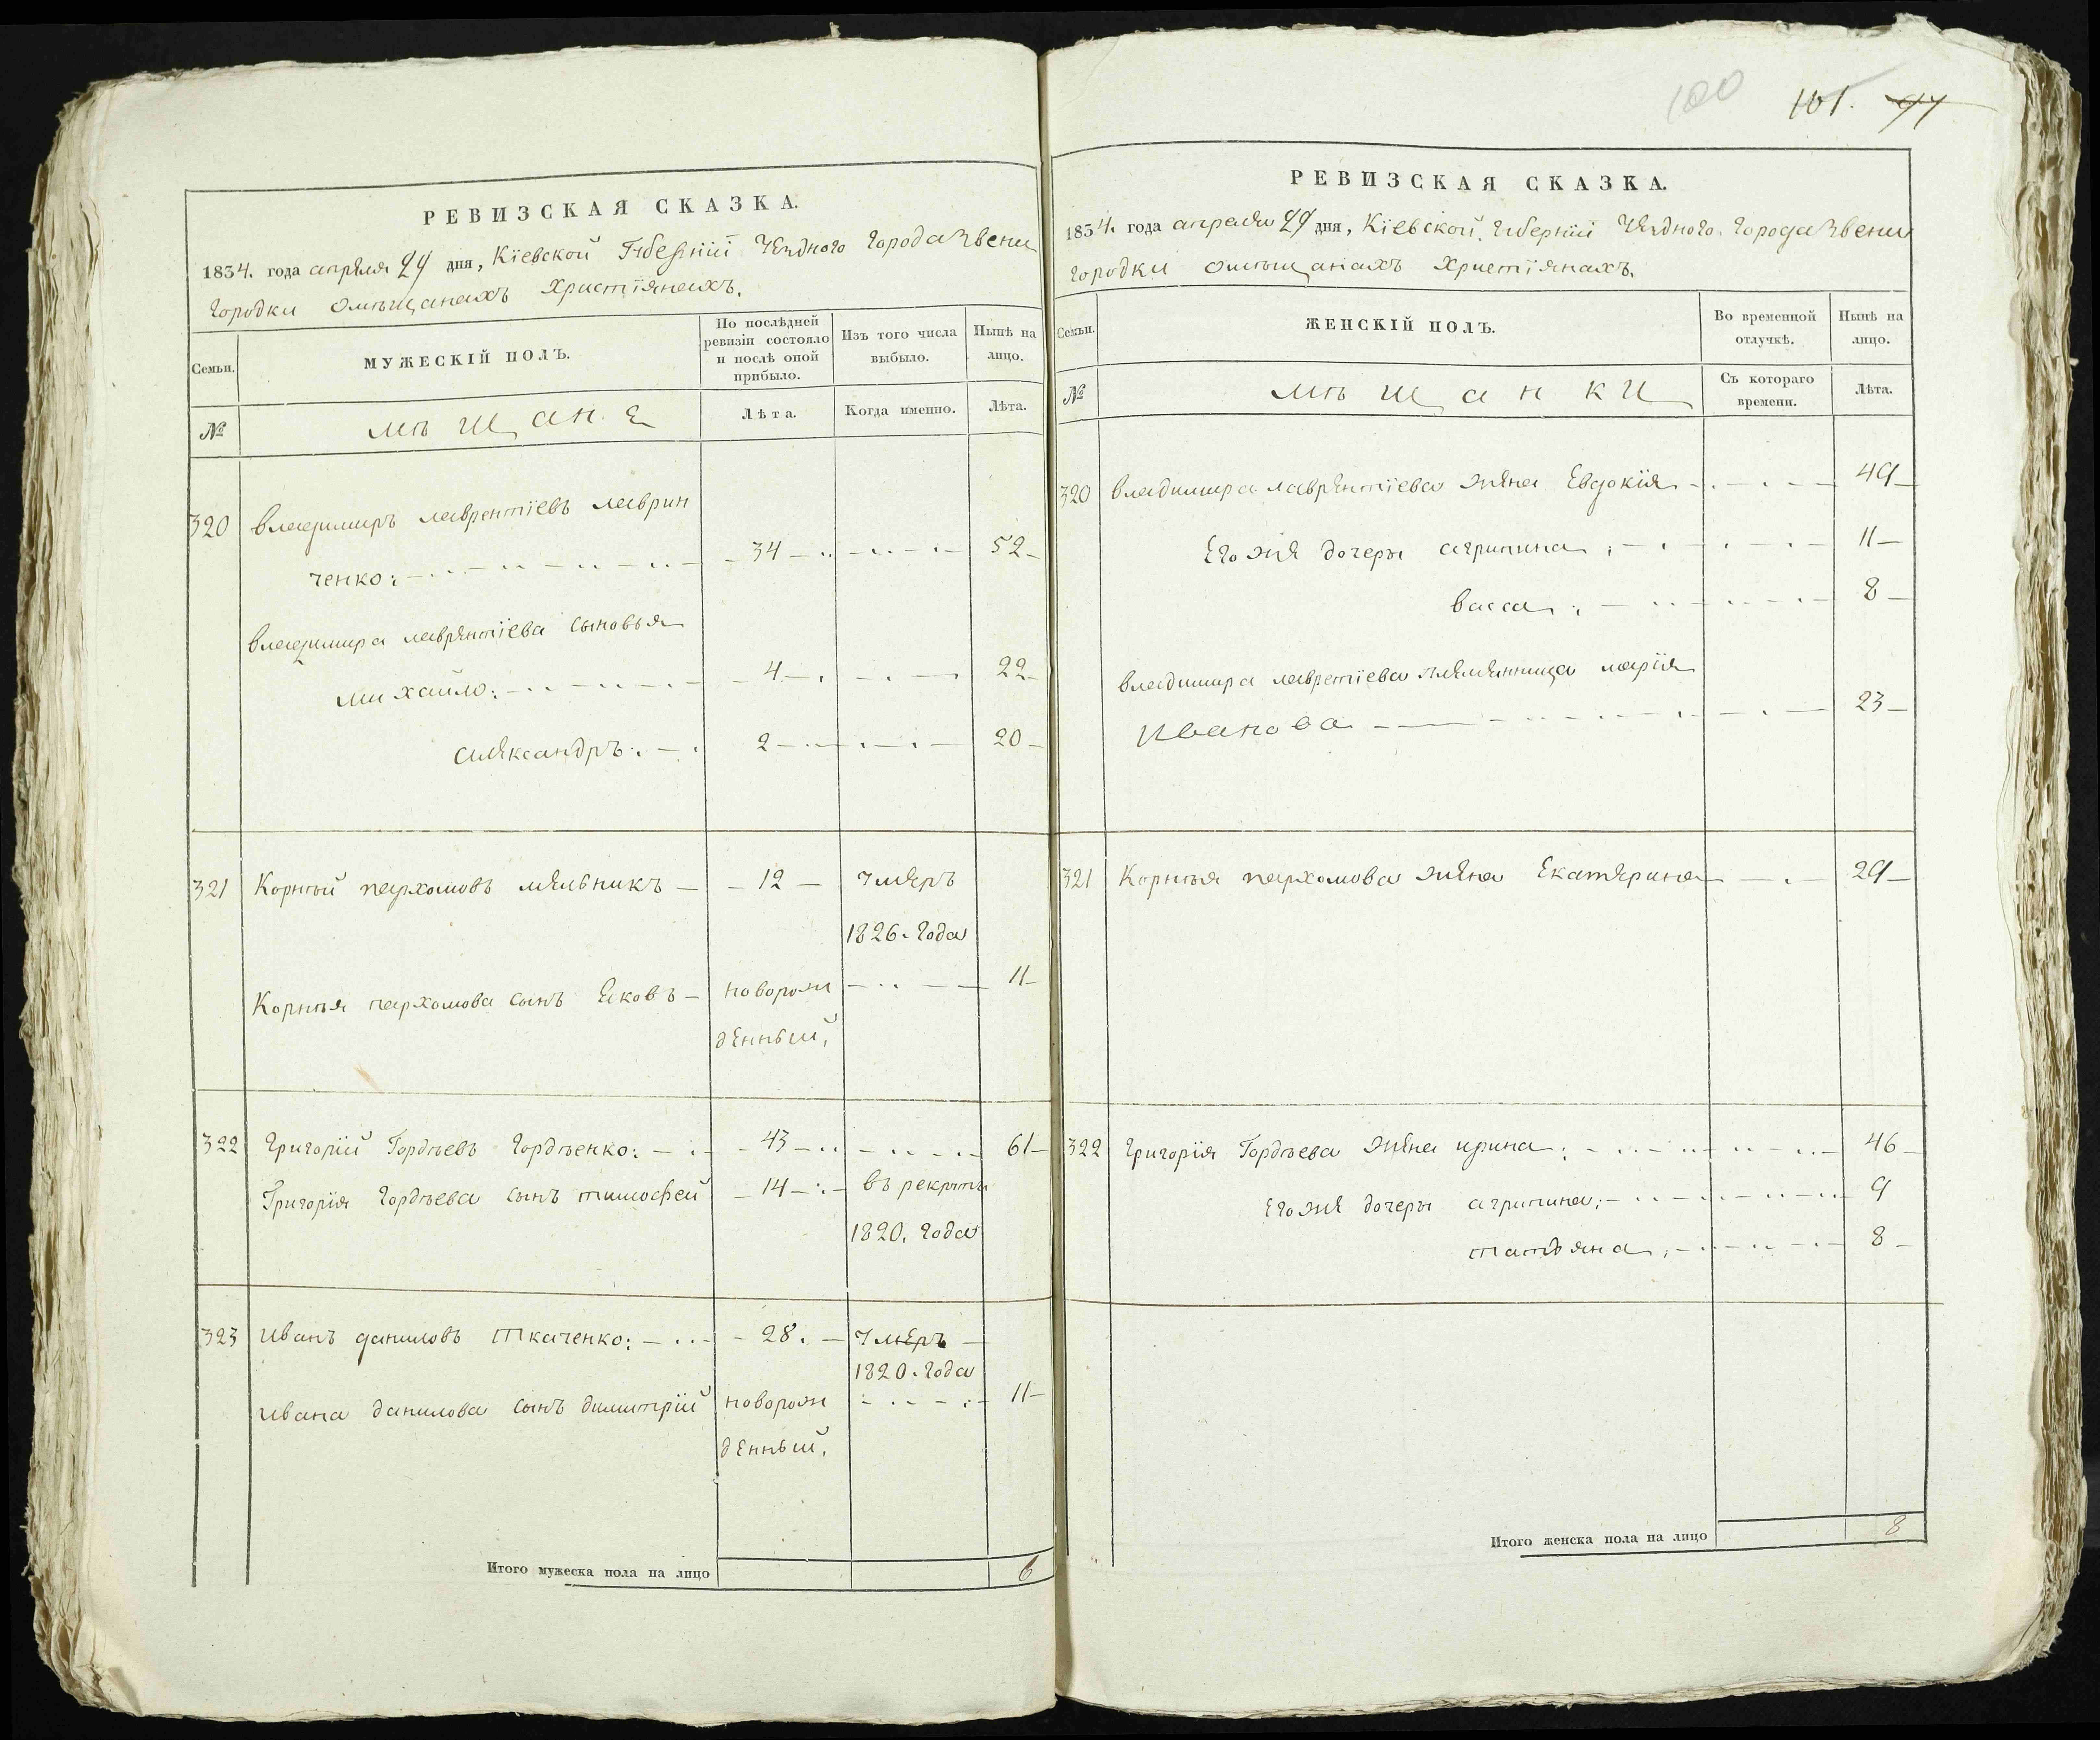 100
101. 94
РЕВИЗСКАЯ СКАЗКА.
1834. года апреля 24 дня, Кіевской Губерніи Уезднаго Города Звени
городки омѣщанахъ христіянахъ.
Семьи.
МУЖЕСКІЙ ПОЛЪ.
По послѣдней
ревизіи состояло
и послѣ оной
прибыло.
Изъ того числа
выбыло.
Нынѣ на
лицо.
№
мѣщане
Лѣта.
Когда именно.
Лѣта.
320 владимиръ лаврентіевъ лаврин
ченко: 34 52
владимира лаврентіева сыновья
михайло: 4 22
александръ: 2 20
321 Корнѣй пархомовъ мельникъ 12 умеръ
1826. года
Корнѣя пархомова сынъ яковъ новорож 11
денный,
322 Григорій Гордѣевъ Гордѣенко: 43 61
Григорія Гордѣева сынъ тимофей 14 въ рекруты
1820. года
323 иванъ даниловъ ткаченко: 28. умеръ
1820. года
ивана данилова сынъ димитрій новорож 11
денный,
Итого мужеска пола на лицо 6
РЕВИЗСКАЯ СКАЗКА.
1834. года апреля 24 дня, Кіевской. губерніи Уезднаго. города Звени
городки омѣщанахъ христіянахъ.
Семьи.
ЖЕНСКІЙ ПОЛЪ.
Во временной
отлучкѣ.
Нынѣ на
лицо.
№
мѣщанки
Съ котораго
времени.
Лѣта.
320 владимира лаврентіева жена Евдокія 49
Его же дочеры агрипина 11
васса 8
владимира лавретіева племянница марія
иванова 23
321 Корнѣя пархомова жена Екатерина 29
322 григорія Гордѣева жена ирина: 46
Его же дочеры агрипина: 9
татьяна 8
Итого женска пола на лицо 8